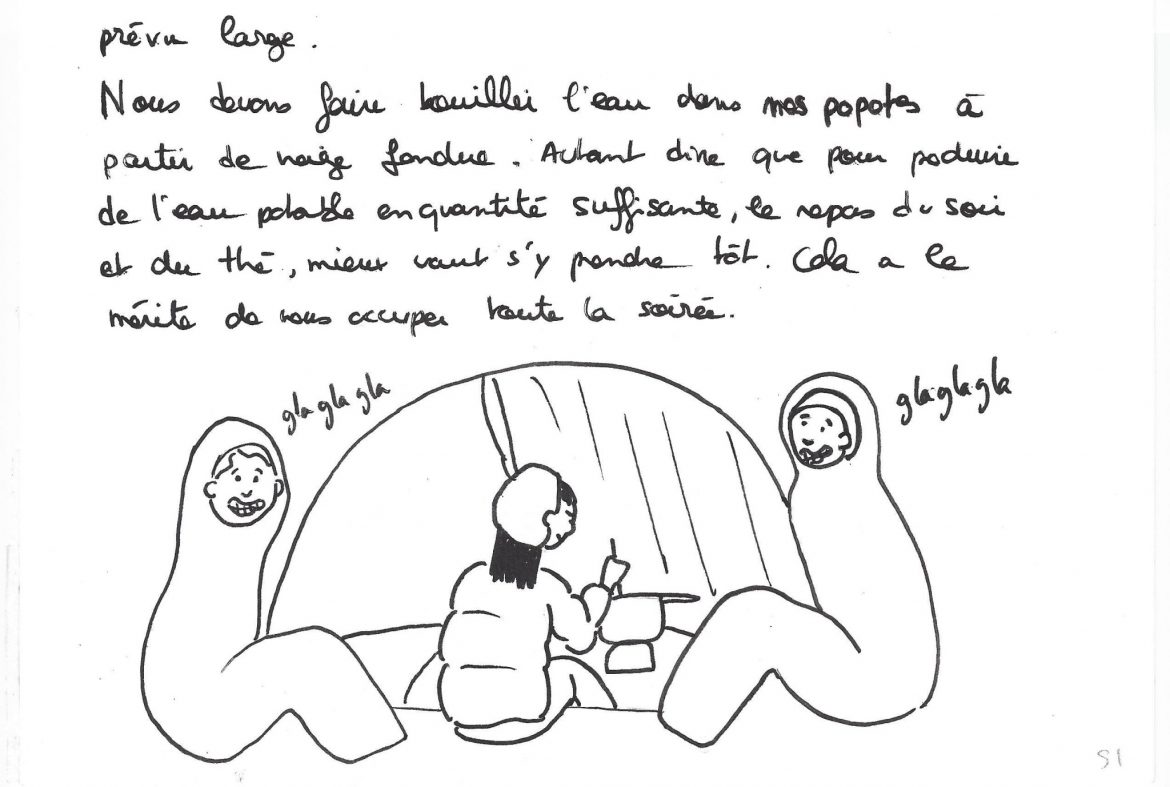 prévu large.
Nous devons faire bouillir l'eau dans nos popotes à
partir de neige fondue. Autant dire que pour produire
de l'eau potable en quantité suffisante, le repas du soir
et du thé, mieux vaut s'y prendre tôt. Cela a le
mérite de nous occuper toute la soirée.
gla gla gla
gla gla gla
51